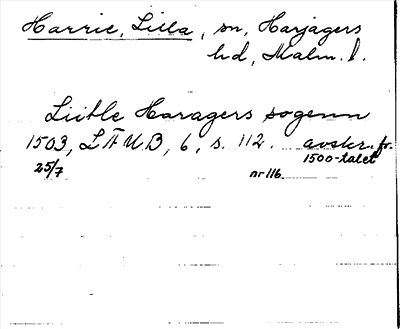 Harrie, Lilla, sn, Harjagers
hd, Malm. l.
Liitle Haragers sogenn
1503, LÄUB, 6, s. 112. avskr. fr.
1500-talet
25/7 nr 116.